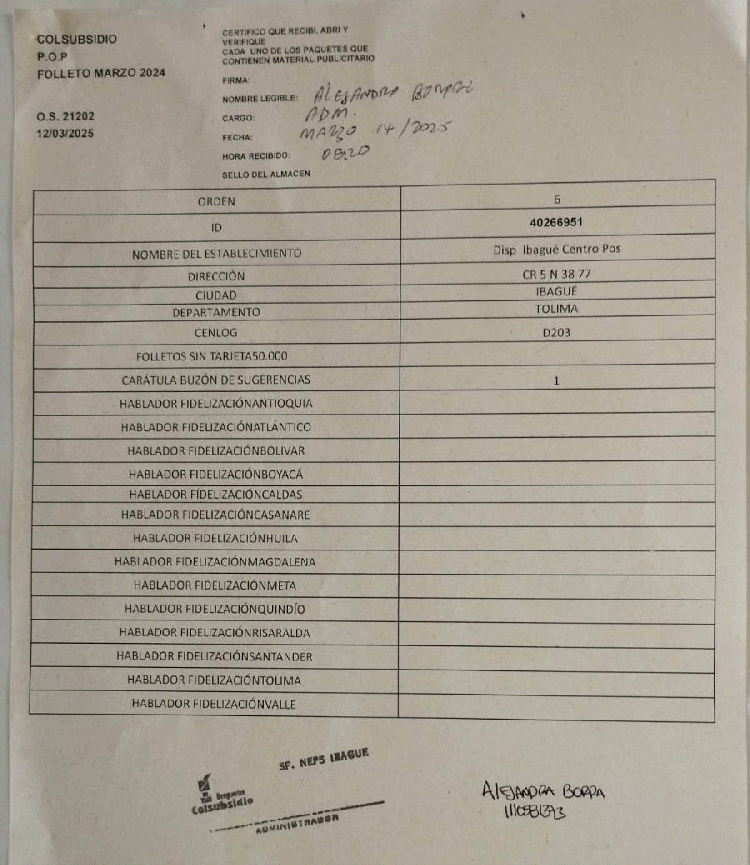 COLSUBSIDIO
P.O.P
FOLLETO MARZO 2024
O.S. 21202
12/03/2025
CERTIFICO QUE RECIBI, ABRI Y
VERIFIQUE
CADA UNO DE LOS PAQUETES QUE
CONTIENEN MATERIAL PUBLICITARIO
FIRMA:
NOMBRE LEGIBLE: ALEJANDRA
CARGO: ADM.
FECHA: MARZO 14/2025
HORA RECIBIDO: 0820
SELLO DEL ALMACEN
ORDEN 5
ID 40266951
NOMBRE DEL ESTABLECIMIENTO Disp Ibagué Centro Pos
DIRECCIÓN CR 5 N 38 77
CIUDAD IBAGUÉ
DEPARTAMENTO TOLIMA
CENLOG D203
FOLLETOS SIN TARJETA50.000
CARÁTULA BUZÓN DE SUGERENCIAS 1
HABLADOR FIDELIZACIÓNANTIOQUIA
HABLADOR FIDELIZACIÓNATLÁNTICO
HABLADOR FIDELIZACIÓNBOLIVAR
HABLADOR FIDELIZACIÓNBOYACÁ
HABLADOR FIDELIZACIÓNCALDAS
HABLADOR FIDELIZACIÓNCASANARE
HABLADOR FIDELIZACIÓNHUILA
HABLADOR FIDELIZACIÓNMAGDALENA
HABLADOR FIDELIZACIÓNMETA
HABLADOR FIDELIZACIÓNQUINDÍO
HABLADOR FIDELIZACIÓNRISARALDA
HABLADOR FIDELIZACIÓNSANTANDER
HABLADOR FIDELIZACIÓNTOLIMA
HABLADOR FIDELIZACIÓNVALLE
SF. NEPS IBAGUE
Droguerías
Colsubsidio
ADMINISTRADOR
ALEJANDRA BORDA